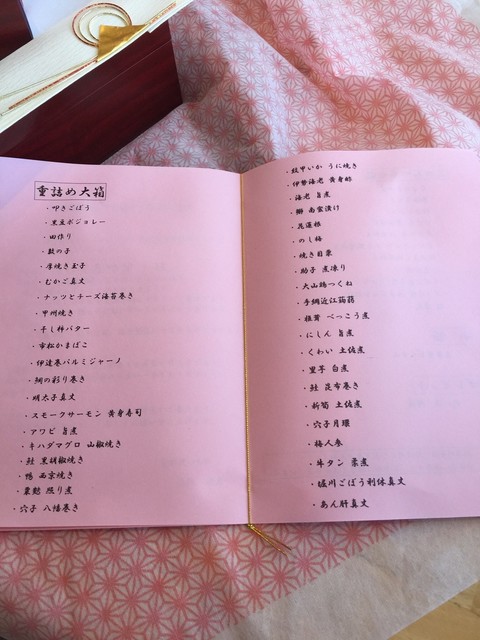 重詰め大箱
・叩きごぼう
・黒豆ボジョレー
・田作り
・数の子
・厚焼き玉子
・むかご真丈
・ナッツとチーズ海苔巻き
・甲州焼き
・干し柿バター
・市松かまぼこ
・伊達巻パルミジャーノ
・鯛の彩り巻き
・明太子真丈
・スモークサーモン 黄身寿司
・アワビ 旨煮
・キハダマグロ 山椒焼き
・鮭 黒胡椒焼き
・鴨 西京焼き
・粟麩 照り煮
・穴子 八幡巻き
・紋甲いか うに焼き
・伊勢海老 黄身酢
・海老 旨煮
・鰤 南蛮漬け
・花蓮根
・のし梅
・焼き目栗
・助子 煮凍り
・大山鶏つくね
・手綱近江蒟蒻
・椎茸 べっこう煮
・にしん 旨煮
・くわい 土佐煮
・里芋 白煮
・鮭 昆布巻き
・新筍 土佐煮
・穴子月環
・梅人参
・牛タン 柔煮
・堀川ごぼう利休真丈
・あん肝真丈